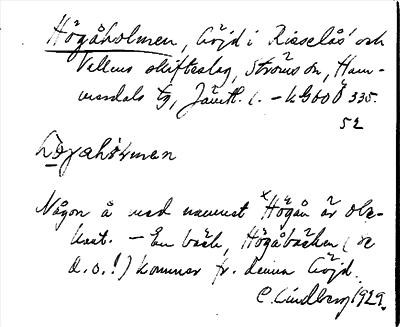 Högåholmen, höjd i Risselås och
Vallens skifteslag, Ströms sn, Ham-
merdals tg, Jämtl. l. – kGboÖ 335.
52

Någon å med namnet *Högån är obe-
kant. – En bäck, Högåbäcken (se
d.o.!) kommer fr. denna höjd.
C. Lindberg 1929.